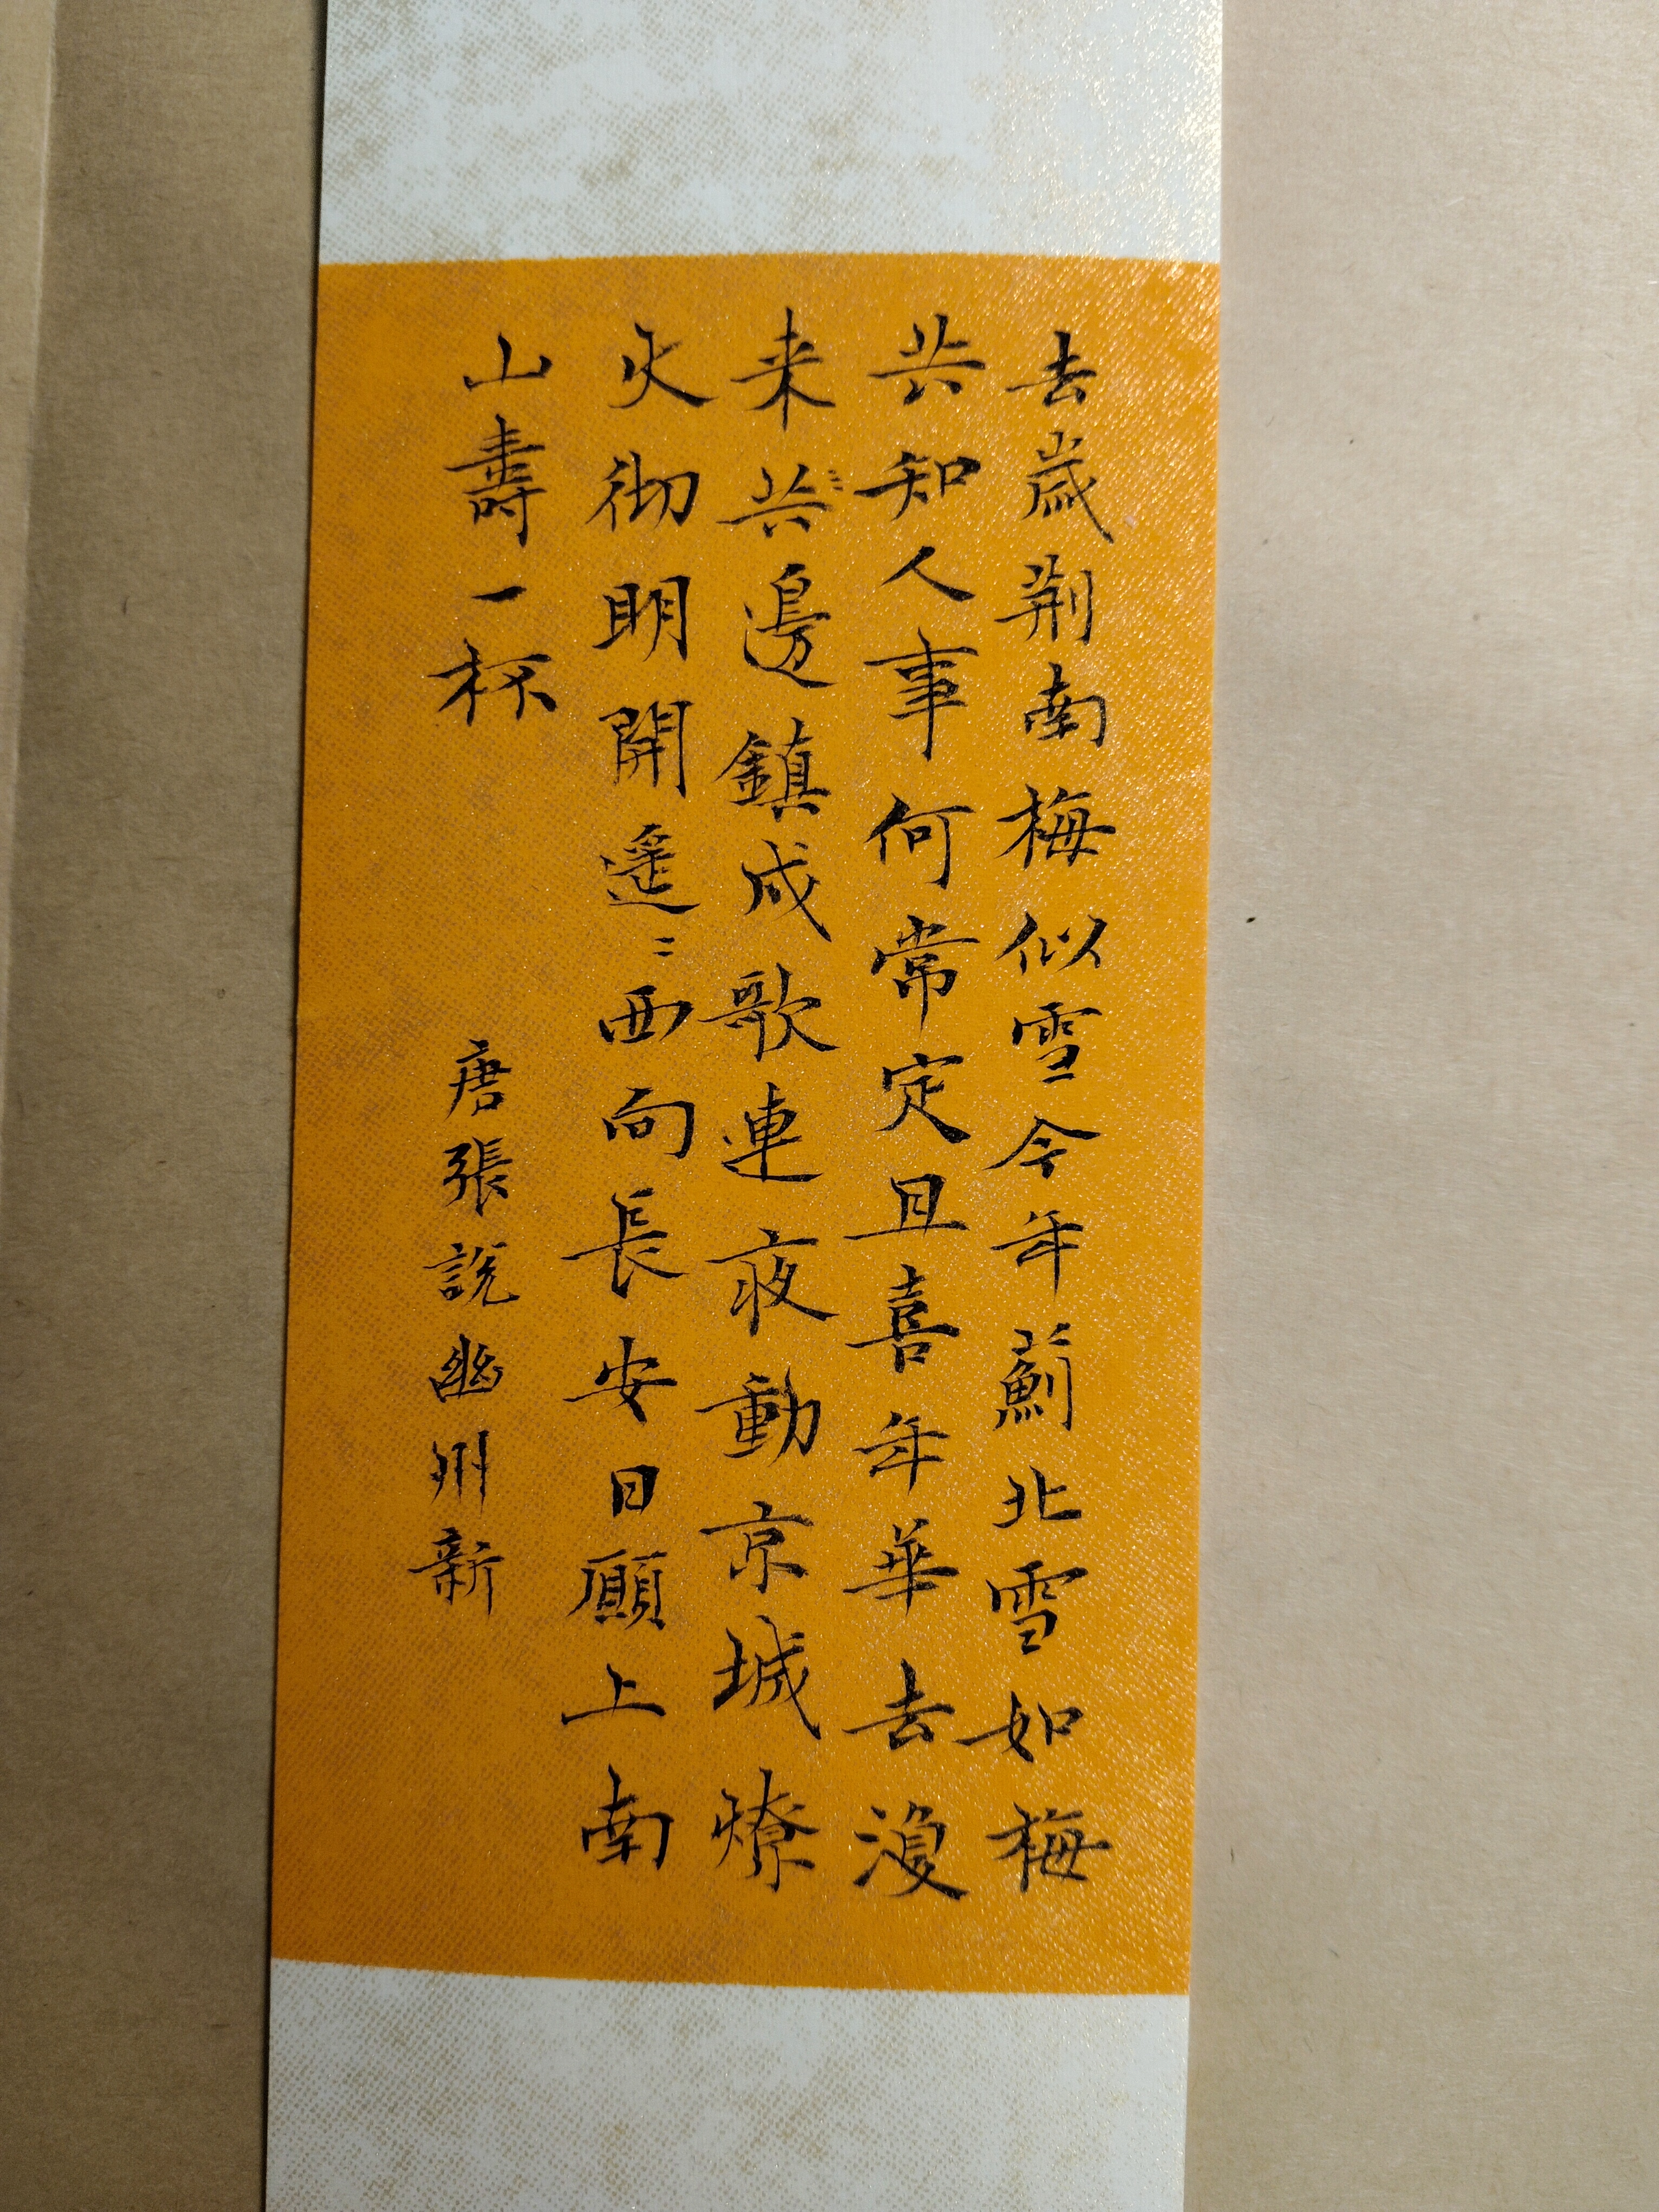 去歲荆南梅似雪今年薊北雪如梅
共知人事何常定且喜年華去復
来共邊鎮戍歌連夜動京城燎
火徹明開遥〻西向長安日願上南
山壽一杯
唐張說幽州新